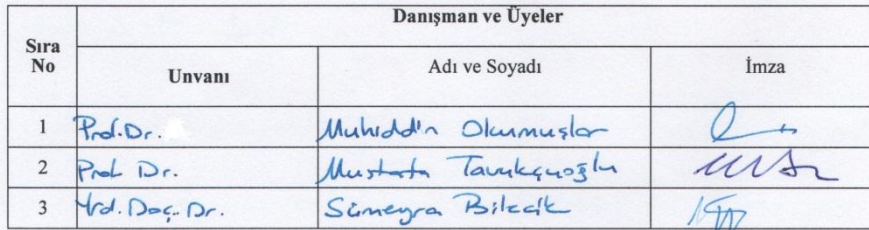 Danışman ve Üyeler
Sıra No Unvanı Adı ve Soyadı İmza
1 Prof. Dr. Muhiddin Okumuşlar
2 Prof. Dr. Mustafa Tavukçuoğlu
3 Yrd. Doç. Dr. Sümeyra Bilecik